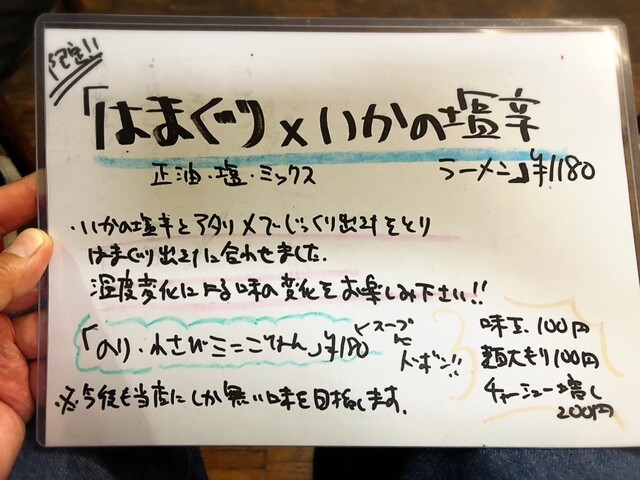 限定!!
「はまぐり×いかの塩辛
正油・塩・ミックス
ラーメン」¥1180
・いかの塩辛とアタリメでじっくり出汁をとり
はまぐり出汁に合わせました。
温度変化による味の変化をお楽しみ下さい!!
「のり・わさびミニごはん」¥180
スープに
ドボン!!
味玉 100円
麺大もり100円
チャーシュー増し
200円
※今後も当店にしか無い味を目指します。